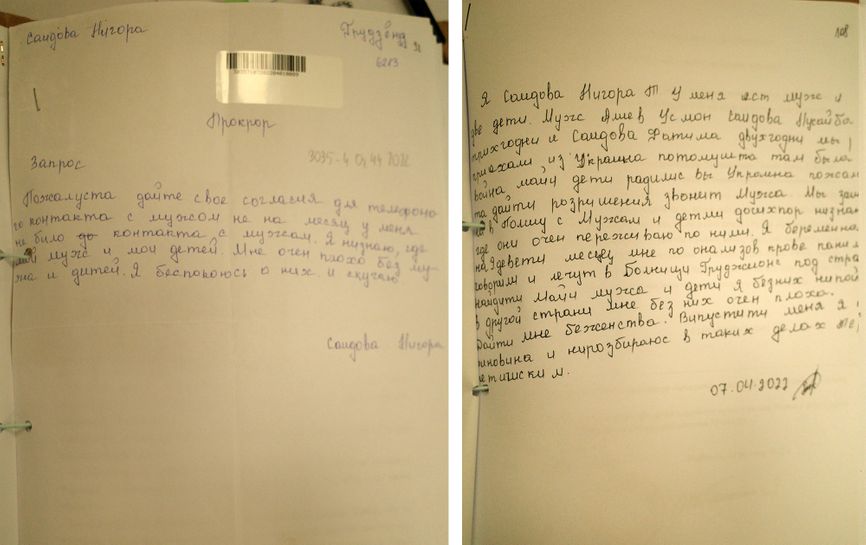 Саидова Нигора
Грудзёндз
Прокрор
Запрос
3035-4
2022
Пожалуста дайте свое согласия для телефоно
го контакта с мужом не на месяц у меня
не било до контакта с мужсам. Я низнаю, где
мой мужс и мои детей. Мне очен плохо без му-
жа и дитей. Я беспокоюсь о них и скучаю
Саидова Нигора
108
Я Саидова Нигора Т У меня ест мужс и
две дети. Мужс Алиев Усмон Саидова
трихгодни и Саидова Фатима двухгодни мы
приехали из Украина потомушта там была
война майи дети радилис вы Украина пожам
та дайти розришения звонит Мужса. Мы
в Полшу с Мужсам и детми досихпор низнаю
где они очен переживаю по ними. Я беременна
на 9 девети месец мне по онализов крове
говорим и лечут в Болници под стра
найдити Майи мужса и дети Я безних
в другой страни мне без них очен плоха.
Дайти мне беженства. Випустити меня я
и нирозбираюс в таких делах
07.04.2022